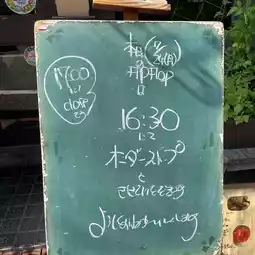 17:00
に
close
です
本日
HipHop
は
16:30
にて
オーダーストップ
と
させていただきます
よろしくお願いします